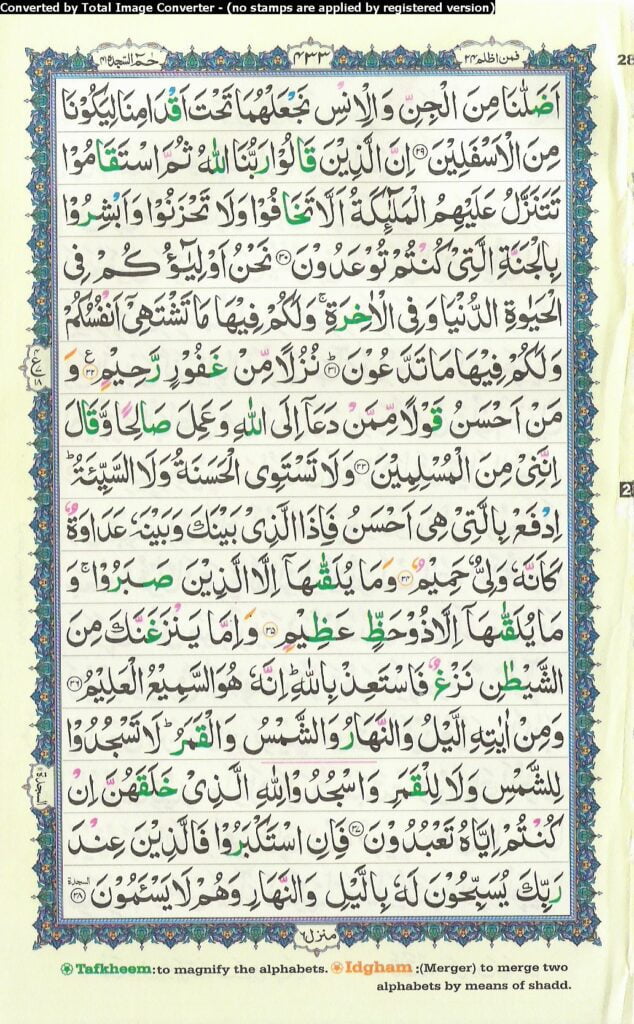 Converted by Total Image Converter - (no stamps are applied by registered version)
فمن اظلم ۲۴ ۴۳۳ حٰمٓ السجدة ۴۱
اَضَلّٰنَا مِنَ الْجِنِّ وَالْاِنْسِ نَجْعَلْهُمَا تَحْتَ اَقْدَامِنَا لِيَكُوْنَا
مِنَ الْاَسْفَلِيْنَ ۲۹ اِنَّ الَّذِيْنَ قَالُوْا رَبُّنَا اللّٰهُ ثُمَّ اسْتَقَامُوْا
تَتَنَزَّلُ عَلَيْهِمُ الْمَلٰٓئِكَةُ اَلَّا تَخَافُوْا وَلَا تَحْزَنُوْا وَاَبْشِرُوْا
بِالْجَنَّةِ الَّتِيْ كُنْتُمْ تُوْعَدُوْنَ ۳۰ نَحْنُ اَوْلِيٰٓؤُكُمْ فِي
الْحَيٰوةِ الدُّنْيَا وَفِي الْاٰخِرَةِ ۚ وَلَكُمْ فِيْهَا مَا تَشْتَهِيْٓ اَنْفُسُكُمْ
وَلَكُمْ فِيْهَا مَا تَدَّعُوْنَ ۳۱ نُزُلًا مِّنْ غَفُوْرٍ رَّحِيْمٍ ۳۲ ع وَ
مَنْ اَحْسَنُ قَوْلًا مِّمَّنْ دَعَآ اِلَى اللّٰهِ وَعَمِلَ صَالِحًا وَّقَالَ
اِنَّنِيْ مِنَ الْمُسْلِمِيْنَ ۳۳ وَلَا تَسْتَوِي الْحَسَنَةُ وَلَا السَّيِّئَةُ ۭ
اِدْفَعْ بِالَّتِيْ هِيَ اَحْسَنُ فَاِذَا الَّذِيْ بَيْنَكَ وَبَيْنَهٗ عَدَاوَةٌ
كَاَنَّهٗ وَلِيٌّ حَمِيْمٌ ۳۴ وَمَا يُلَقّٰىهَآ اِلَّا الَّذِيْنَ صَبَرُوْا ۚ وَ
مَا يُلَقّٰىهَآ اِلَّا ذُوْ حَظٍّ عَظِيْمٍ ۳۵ وَاِمَّا يَنْزَغَنَّكَ مِنَ
الشَّيْطٰنِ نَزْغٌ فَاسْتَعِذْ بِاللّٰهِ ۭ اِنَّهٗ هُوَ السَّمِيْعُ الْعَلِيْمُ ۳۶
وَمِنْ اٰيٰتِهِ الَّيْلُ وَالنَّهَارُ وَالشَّمْسُ وَالْقَمَرُ ۭ لَا تَسْجُدُوْا
لِلشَّمْسِ وَلَا لِلْقَمَرِ وَاسْجُدُوْا لِلّٰهِ الَّذِيْ خَلَقَهُنَّ اِنْ
كُنْتُمْ اِيَّاهُ تَعْبُدُوْنَ ۳۷ فَاِنِ اسْتَكْبَرُوْا فَالَّذِيْنَ عِنْدَ
رَبِّكَ يُسَبِّحُوْنَ لَهٗ بِالَّيْلِ وَالنَّهَارِ وَهُمْ لَا يَسْـَٔمُوْنَ ۳۸ السجدة
منزل ۶
Tafkheem:to magnify the alphabets. Idgham :(Merger) to merge two
alphabets by means of shadd.